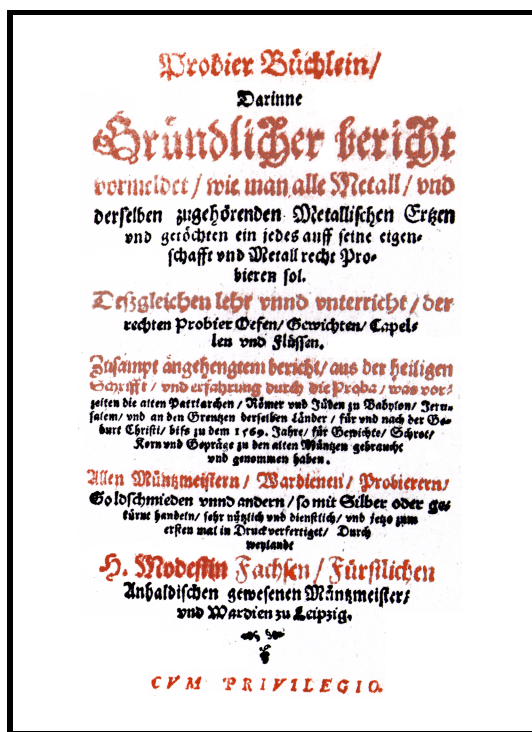 Probier Büchlein/
Darinne
Gründlicher bericht
vormeldet/ wie man alle Metall/ vnd
derselben zugehörenden Metallischen Ertzen
vnd getöchten ein jedes auff seine eigen-
schafft vnd Metall recht Pro-
bieren sol.
Deßgleichen lehr vnnd vnterricht/ der
rechten Probier Oefen/ Gewichten/ Capel-
len vnd Flüssen.
Zusampt angehengtem bericht/ aus der heiligen
Schrifft/ vnd erfahrung durch die Proba/ was vor-
zeiten die alten Patriarchen/ Römer vnd Jüden zu Babylon/ Jeru-
salem/ vnd an den Grentzen derselben Länder/ für vnd nach der Ge-
burt Christi/ biss zu dem 1569. Jahre/ für Gewichte/ Schrot/
Korn vnd Gepräge zu den alten Müntzen gebraucht
vnd genommen haben.
Allen Müntzmeistern/ Wardienen/ Probierern/
Goldschmieden vnnd andern/ so mit Silber oder ge-
handeln/ sehr nützlich vnd dienstlich/ vnd jetzo zum
ersten mal in Druck verfertiget/ Durch
weylande
H. Modestin Fachsen/ Fürstlichen
Anhaldischen gewesenen Müntzmeister/
vnd Wardien zu Leipzig.
CVM PRIVILEGIO.